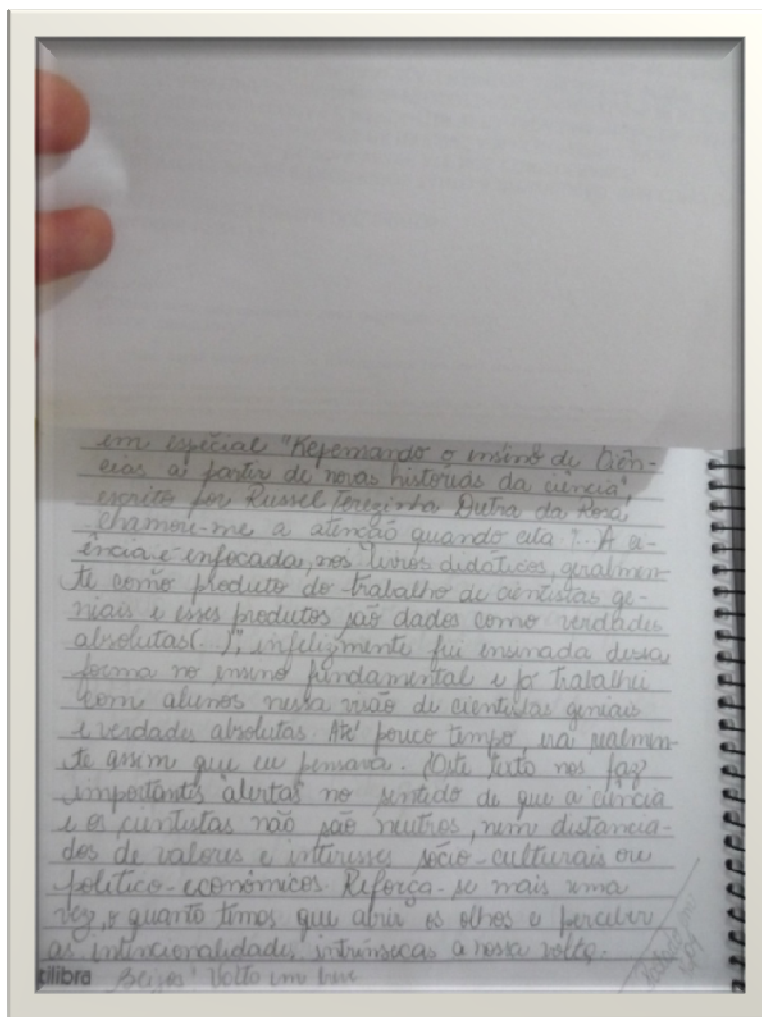 em especial "Repensando o ensino de Ciên-
cias a partir de novas histórias da ciência",
escrito por Russel Terezinha Dutra da Rosa,
chamou-me a atenção quando cita "...A ci-
ência é enfocada, nos livros didáticos, geralmen-
te como produto do trabalho de cientistas ge-
niais e esses produtos são dados como verdades
absolutas(...)", infelizmente fui ensinada dessa
forma no ensino fundamental e já trabalhei
com alunos nessa visão de cientistas geniais
e verdade absolutas. Até pouco tempo, era realmen-
te assim que eu pensava. Este texto nos faz
importantes alertas no sentido de que a ciência
e os cientistas não são neutros, nem distancia-
dos de valores e interesses sócio-culturais ou
político-econômicos. Reforça-se mais uma
vez, o quanto temos que abrir os olhos e perceber
as intencionalidades intrínsecas a nossa volta.
tilibra Beijos! Volto em breve